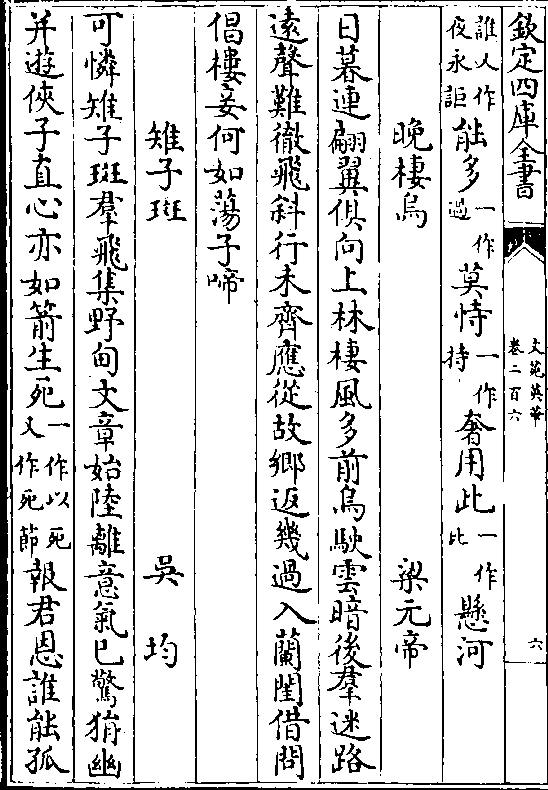 欽定四庫全書
文苑英華
卷二百六
六
誰人作
夜永詎能多一作過莫恃一作持奢用此一作比懸河
晚棲烏
梁元帝
日暮連翩翼俱向上林棲風多前烏駛雲暗後羣迷路
遠聲難徹飛斜行未齊應從故鄉返幾過入蘭閨借問
倡樓妾何如蕩子啼
雉子班
吳均
可憐雉子班羣飛集野甸文章始陸離意氣已驚狷幽
并遊俠子直心亦如箭生死一作以死又作死節報君恩誰能孤